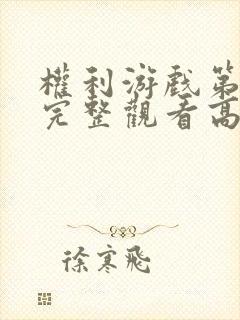 權利游戲第
完整觀看高
徐寒飛